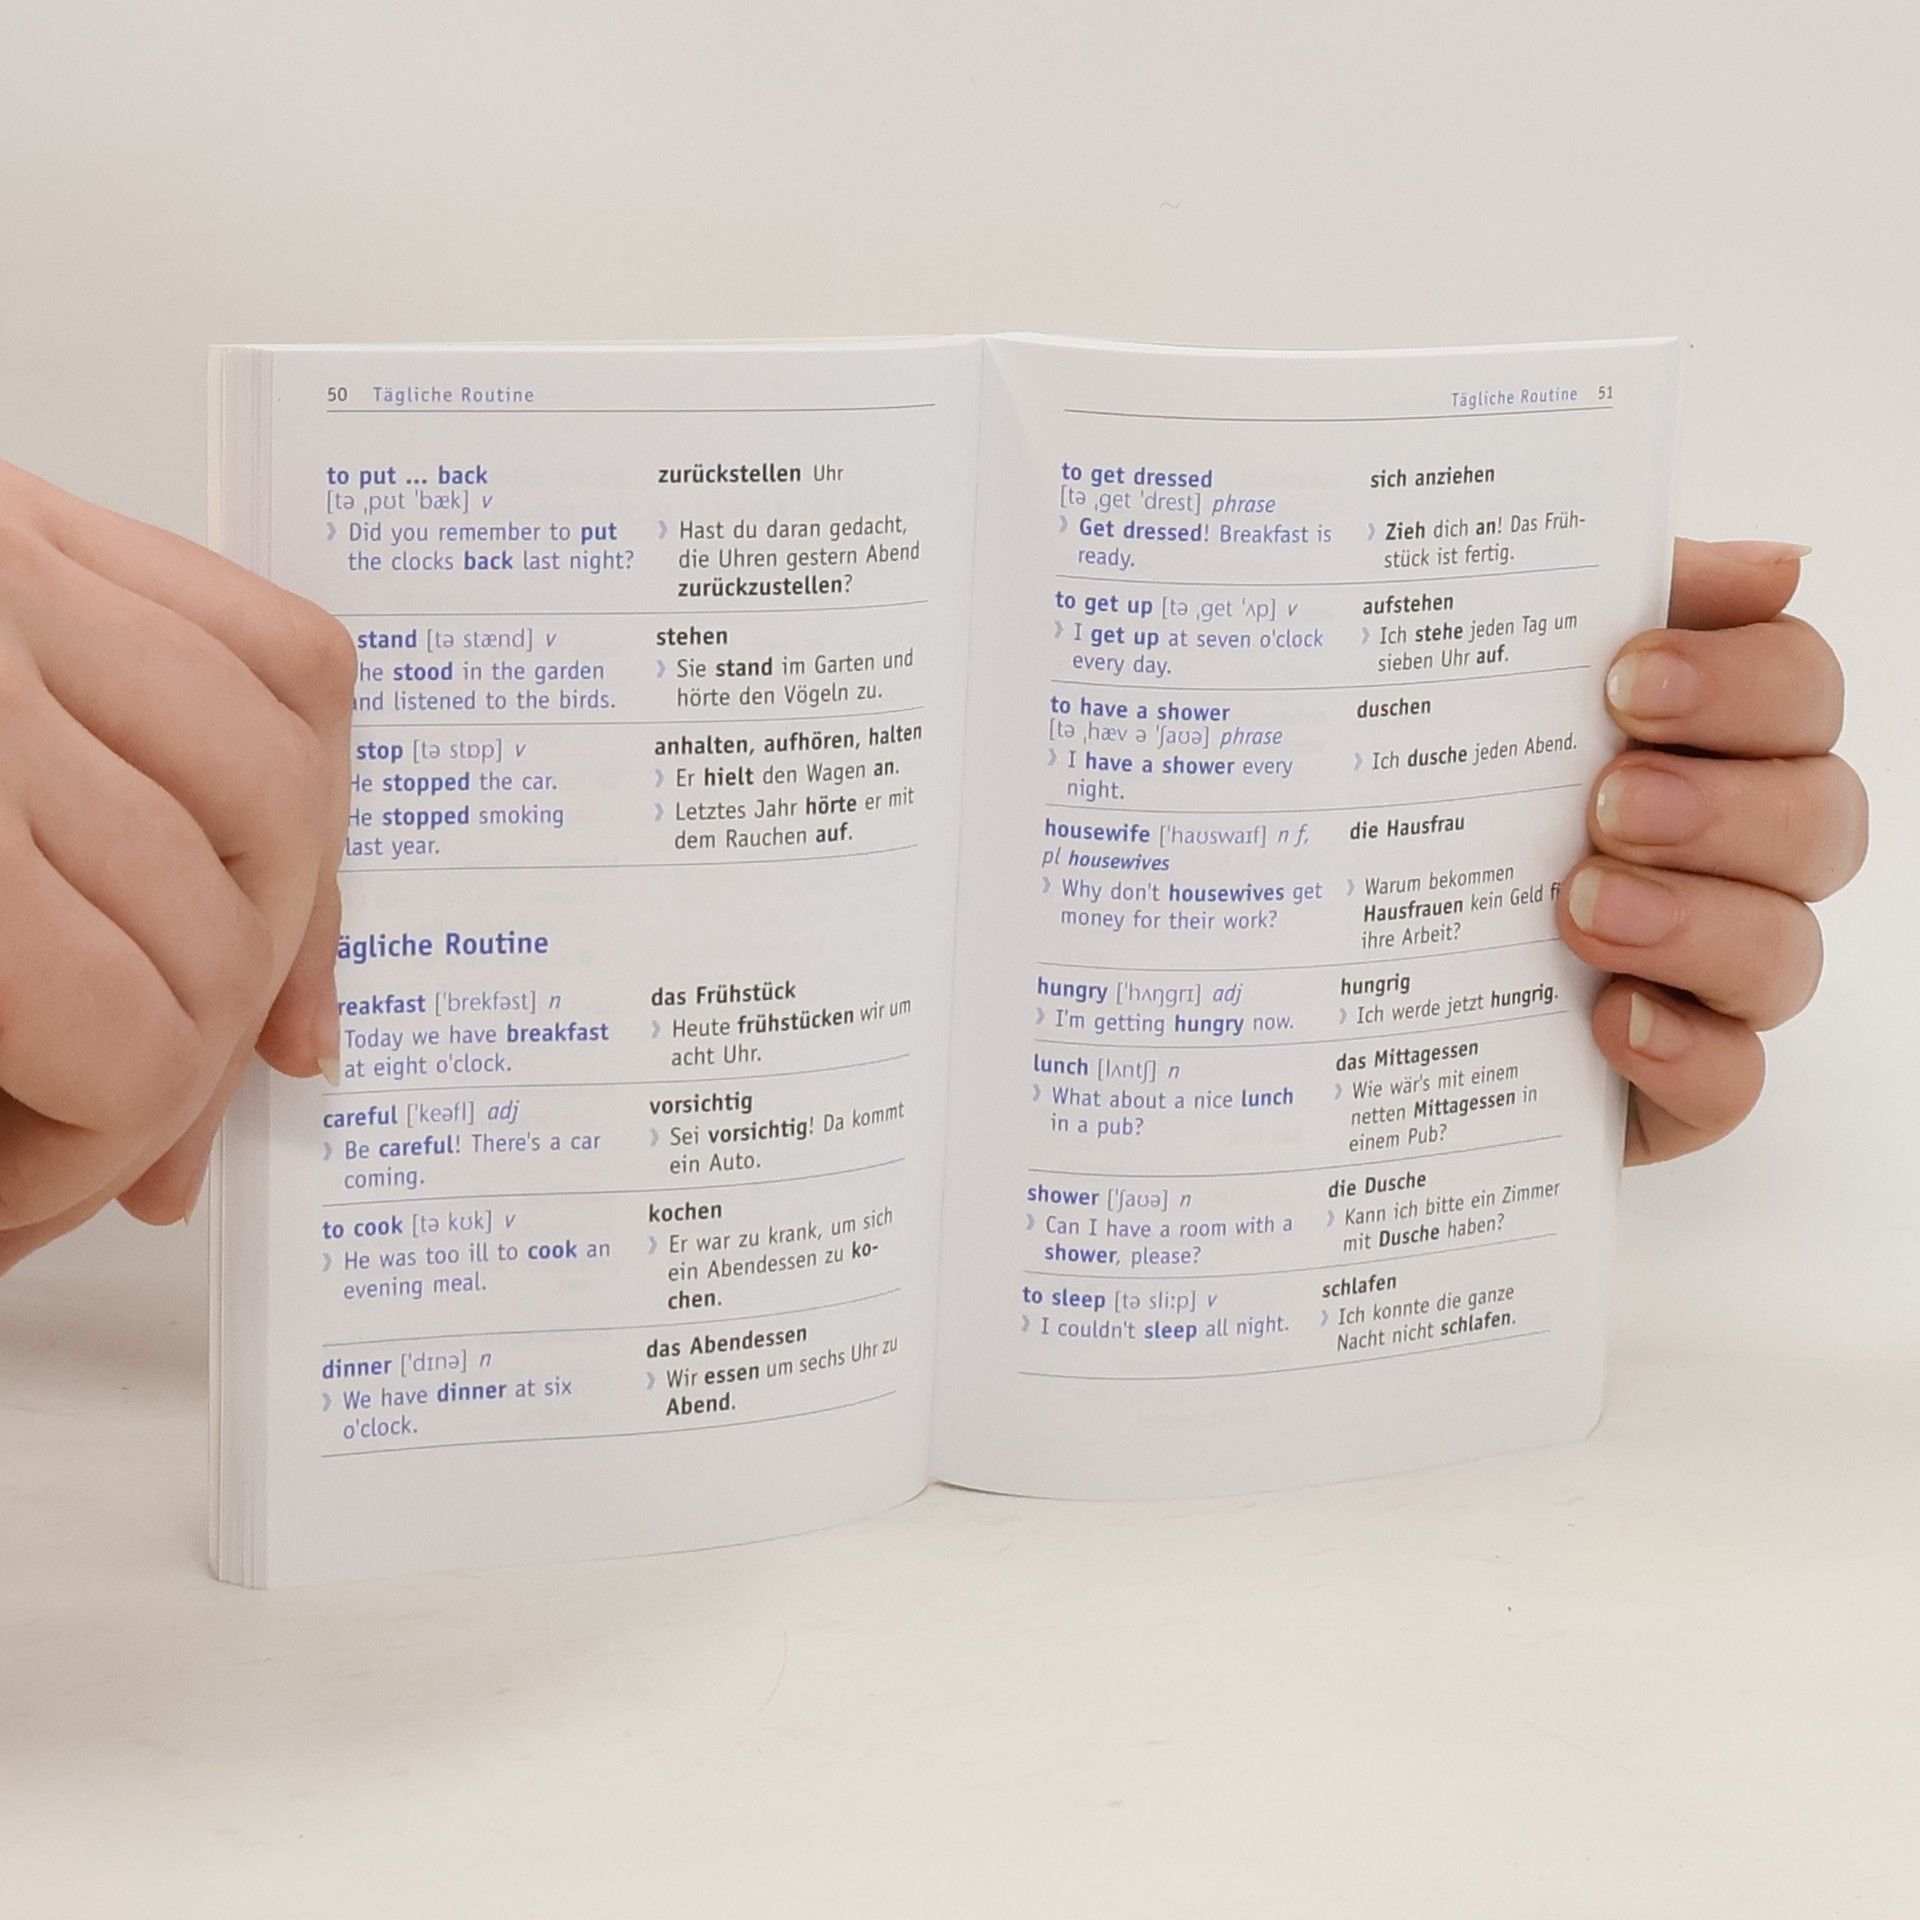 50 Tägliche Routine
to put ... back
[tə ˌpʊt ˈbæk] v
》 Did you remember to put
the clocks back last night?
zurückstellen Uhr
》 Hast du daran gedacht,
die Uhren gestern Abend
zurückzustellen?
stand [tə stænd] v
he stood in the garden
and listened to the birds.
stehen
》 Sie stand im Garten und
hörte den Vögeln zu.
stop [tə stɒp] v
He stopped the car.
He stopped smoking
last year.
anhalten, aufhören, halten
》 Er hielt den Wagen an.
》 Letztes Jahr hörte er mit
dem Rauchen auf.
ägliche Routine
reakfast [ˈbrekfəst] n
Today we have breakfast
at eight o'clock.
das Frühstück
》 Heute frühstücken wir um
acht Uhr.
careful [ˈkeəfl] adj
》 Be careful! There's a car
coming.
vorsichtig
》 Sei vorsichtig! Da kommt
ein Auto.
to cook [tə kʊk] v
》 He was too ill to cook an
evening meal.
kochen
》 Er war zu krank, um sich
ein Abendessen zu ko-
chen.
dinner [ˈdɪnə] n
》 We have dinner at six
o'clock.
das Abendessen
》 Wir essen um sechs Uhr zu
Abend.
Tägliche Routine 51
to get dressed
[tə ˌget ˈdrest] phrase
》 Get dressed! Breakfast is
ready.
sich anziehen
》 Zieh dich an! Das Früh-
stück ist fertig.
to get up [tə ˌget ˈʌp] v
》 I get up at seven o'clock
every day.
aufstehen
》 Ich stehe jeden Tag um
sieben Uhr auf.
to have a shower
[tə ˌhæv ə ˈʃaʊə] phrase
》 I have a shower every
night.
duschen
》 Ich dusche jeden Abend.
housewife [ˈhaʊswaɪf] n f,
pl housewives
》 Why don't housewives get
money for their work?
die Hausfrau
》 Warum bekommen
Hausfrauen kein Geld f
ihre Arbeit?
hungry [ˈhʌŋgrɪ] adj
》 I'm getting hungry now.
hungrig
》 Ich werde jetzt hungrig.
lunch [lʌntʃ] n
》 What about a nice lunch
in a pub?
das Mittagessen
》 Wie wär's mit einem
netten Mittagessen in
einem Pub?
shower [ˈʃaʊə] n
》 Can I have a room with a
shower, please?
die Dusche
》 Kann ich bitte ein Zimmer
mit Dusche haben?
to sleep [tə sliːp] v
》 I couldn't sleep all night.
schlafen
》 Ich konnte die ganze
Nacht nicht schlafen.